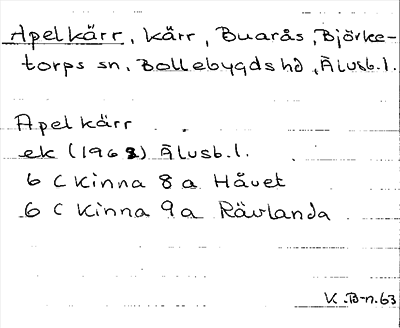 Apelkärr, kärr, Buarås, Björke-
torps sn, Bollebygds hd, Älvsb.l.
Apelkärr
ek (1968) Älvsb.l.
6 C Kinna 8 a Håvet
6 C Kinna 9 a Rävlanda
K.B-n.63